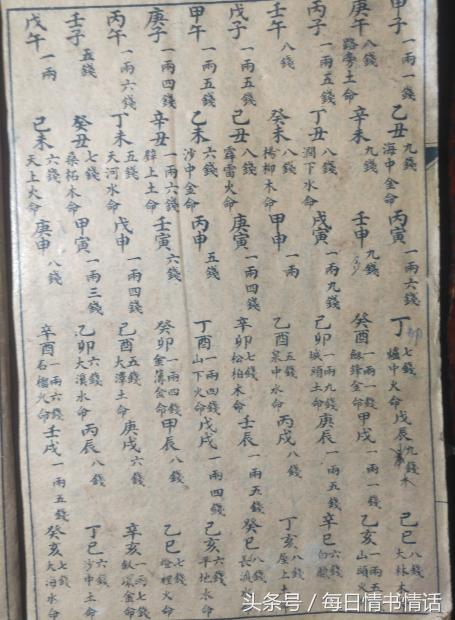 甲子 一兩一錢 乙丑 九錢 海中金命 丙寅 一兩六錢 丁卯 七錢 爐中火命 戊辰 九錢 木 己巳 八錢 大林木
庚午 八錢 路旁土命 辛未 九錢 壬申 九錢 癸酉 一兩一錢 釼鋒金命 甲戌 一兩一錢 乙亥 一兩五 山頭火
丙子 一兩五錢 丁丑 八錢 澗下水命 戊寅 一兩九錢 己卯 一兩九錢 城頭土命 庚辰 一兩五錢 辛巳 六錢 白臘
壬午 八錢 癸未 八錢 楊柳木命 甲申 一兩 乙酉 五錢 泉中水命 丙戌 八錢 丁亥 八錢 屋上土
戊子 一兩五錢 己丑 八錢 霹雷火命 庚寅 一兩四錢 辛卯 七錢 松柏木命 壬辰 一兩五錢 癸巳 八錢 長流
甲午 一兩五錢 乙未 六錢 沙中金命 丙申 五錢 丁酉 一兩四錢 山下火命 戊戌 一兩四錢 己亥 六錢 平地水命
庚子 一兩四錢 辛丑 一兩六錢 壁上土命 壬寅 六錢 癸卯 一兩四錢 金簿金命 甲辰 八錢 乙巳 七錢 燈裡火命
丙午 一兩六錢 丁未 五錢 天河水命 戊申 一兩四錢 己酉 五錢 大澤土命 庚戌 六錢 辛亥 一兩七錢 釵環金命
壬子 五錢 癸丑 七錢 桑柘木命 甲寅 一兩三錢 乙卯 六錢 大溪水命 丙辰 八錢 丁巳 六錢 沙中土命
戊午 一兩 己未 六錢 天上火命 庚申 八錢 辛酉 一兩六錢 石榴火命 壬戌 一兩五錢 癸亥 七錢 大海水命
头条号 / 每日情书情话